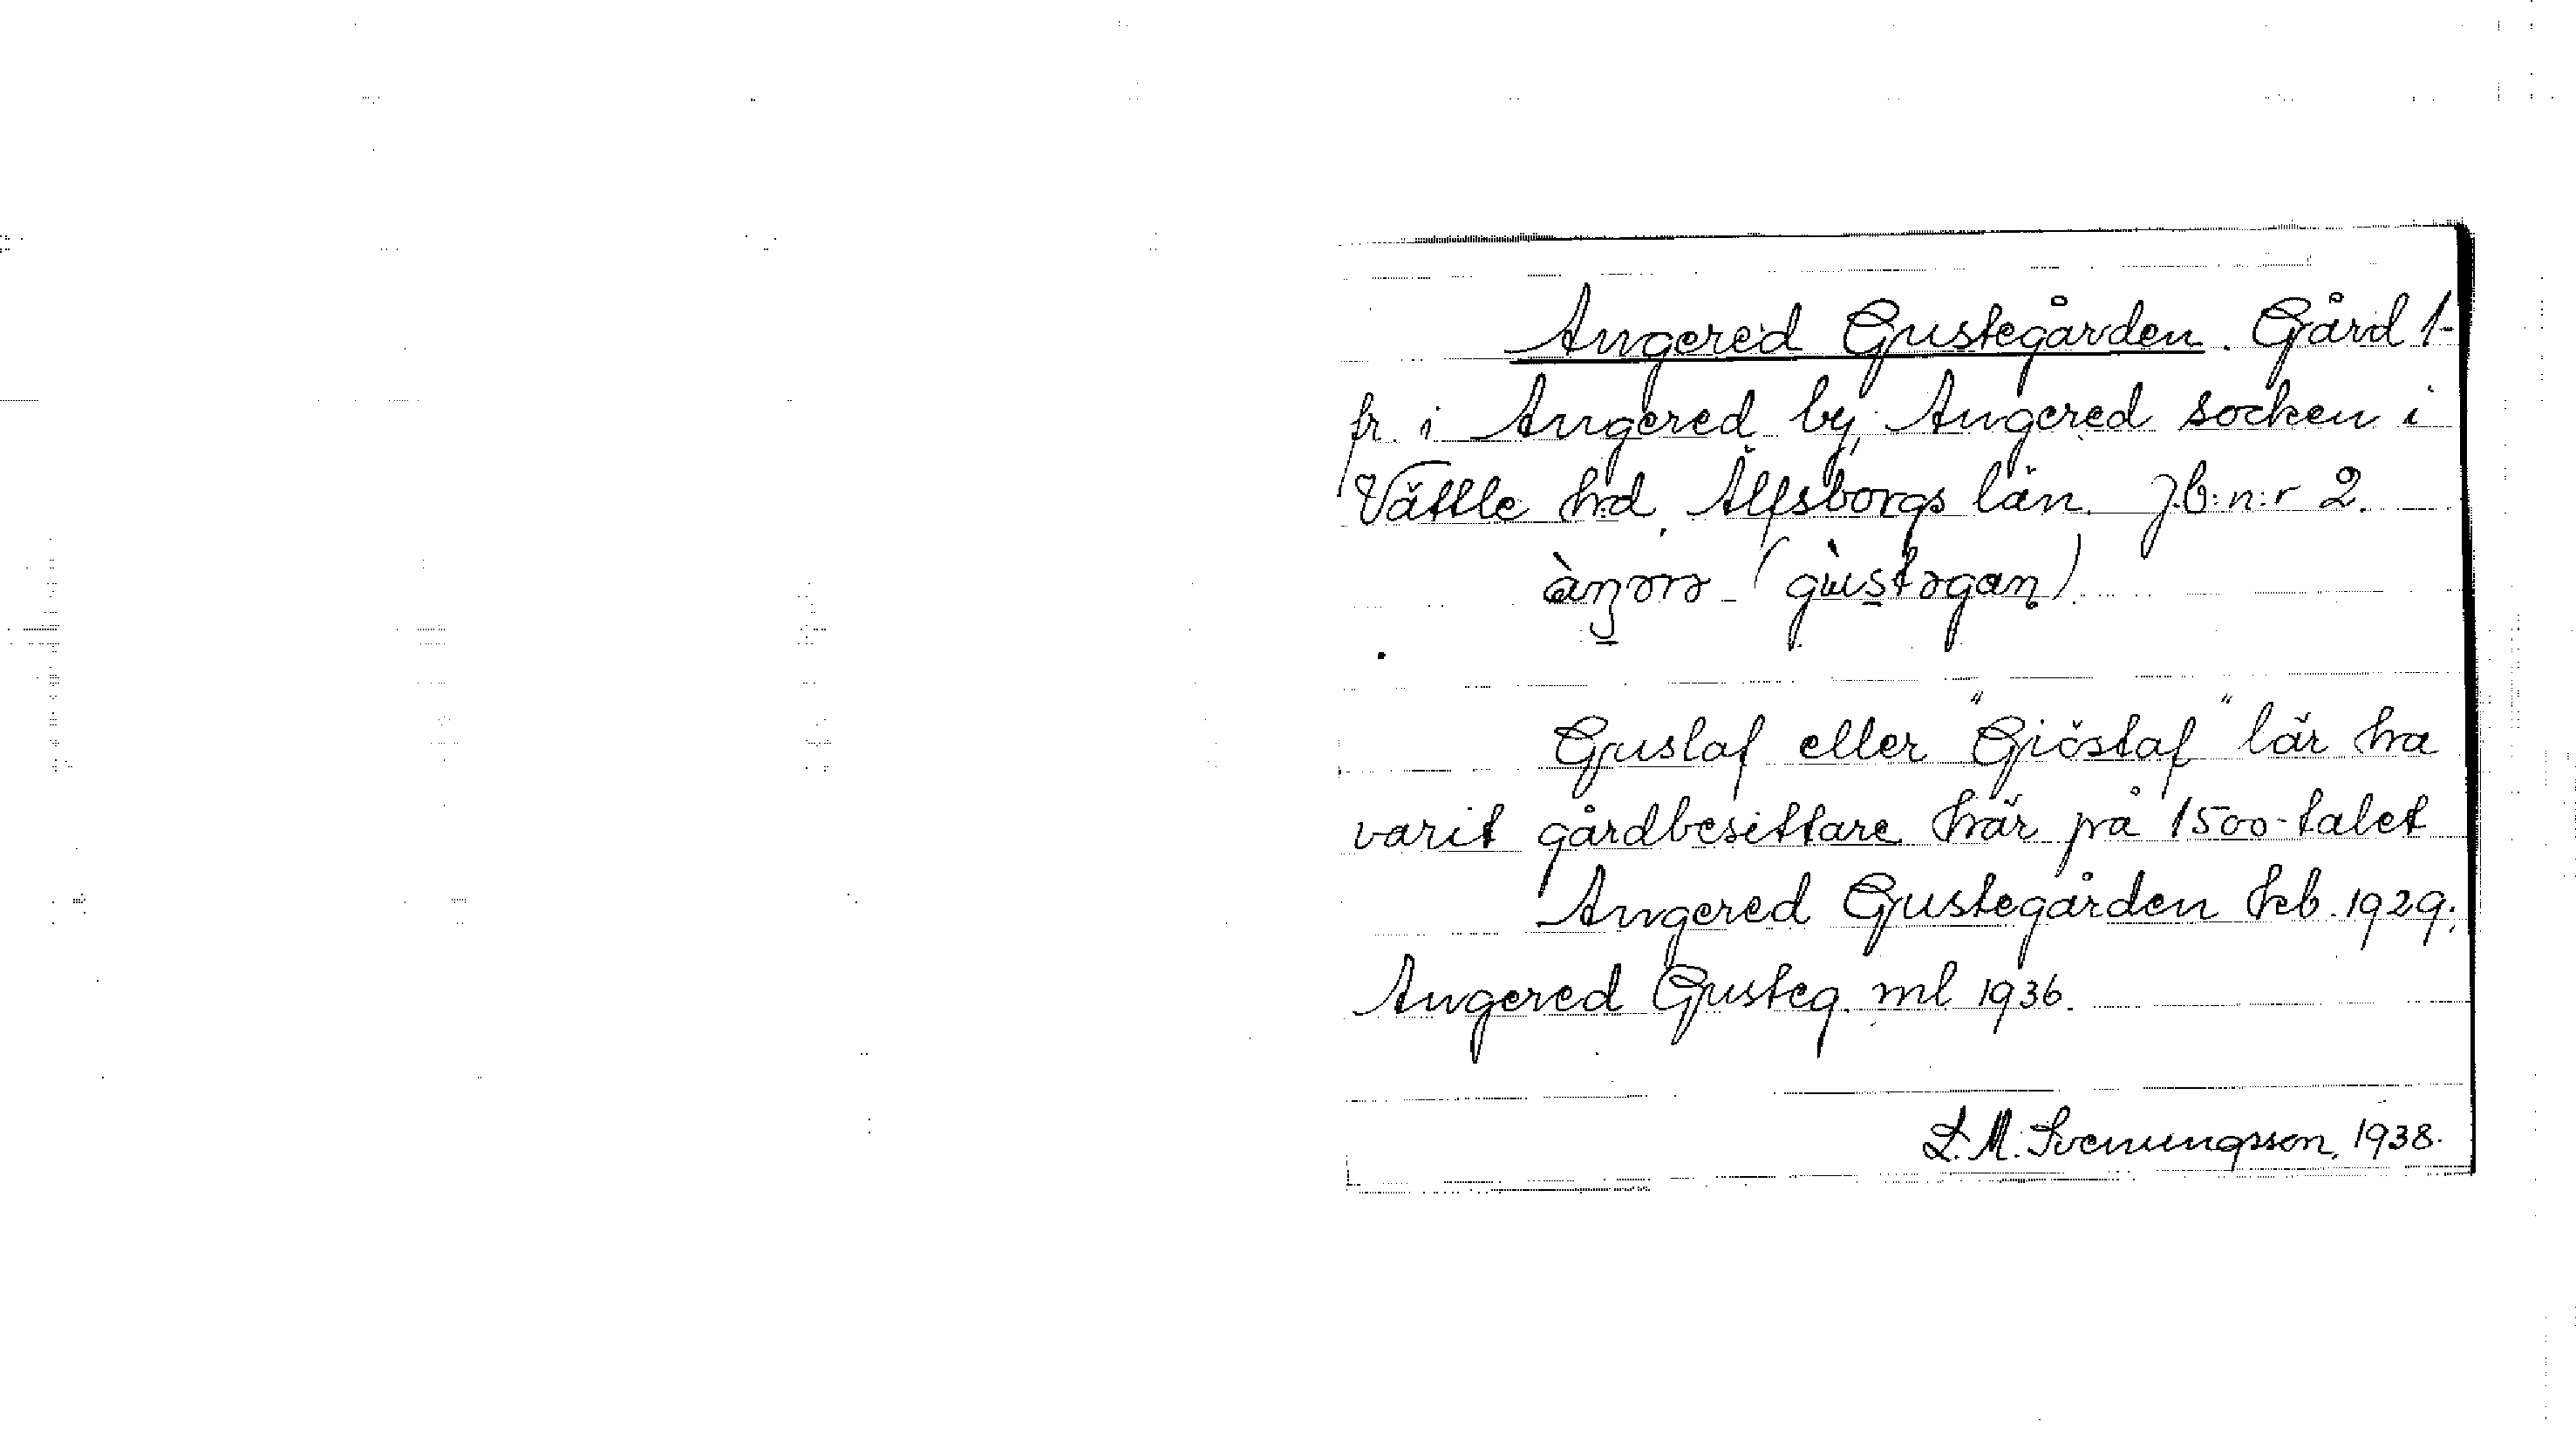 Angered Gustegården. Gård 1-
fr. i Angered by, Angered socken i
Vättle hd, Älfsborgs län. J.b:n:r 2.
àŋərə- (gùstəgaṇ).
Gustaf eller "Giöstaf" lär ha
varit gårdbesittare här på 1500-talet
Angered Gustegården kb. 1929.
Angered Gusteg. ml 1936.
L. M. Svenungsson, 1938.